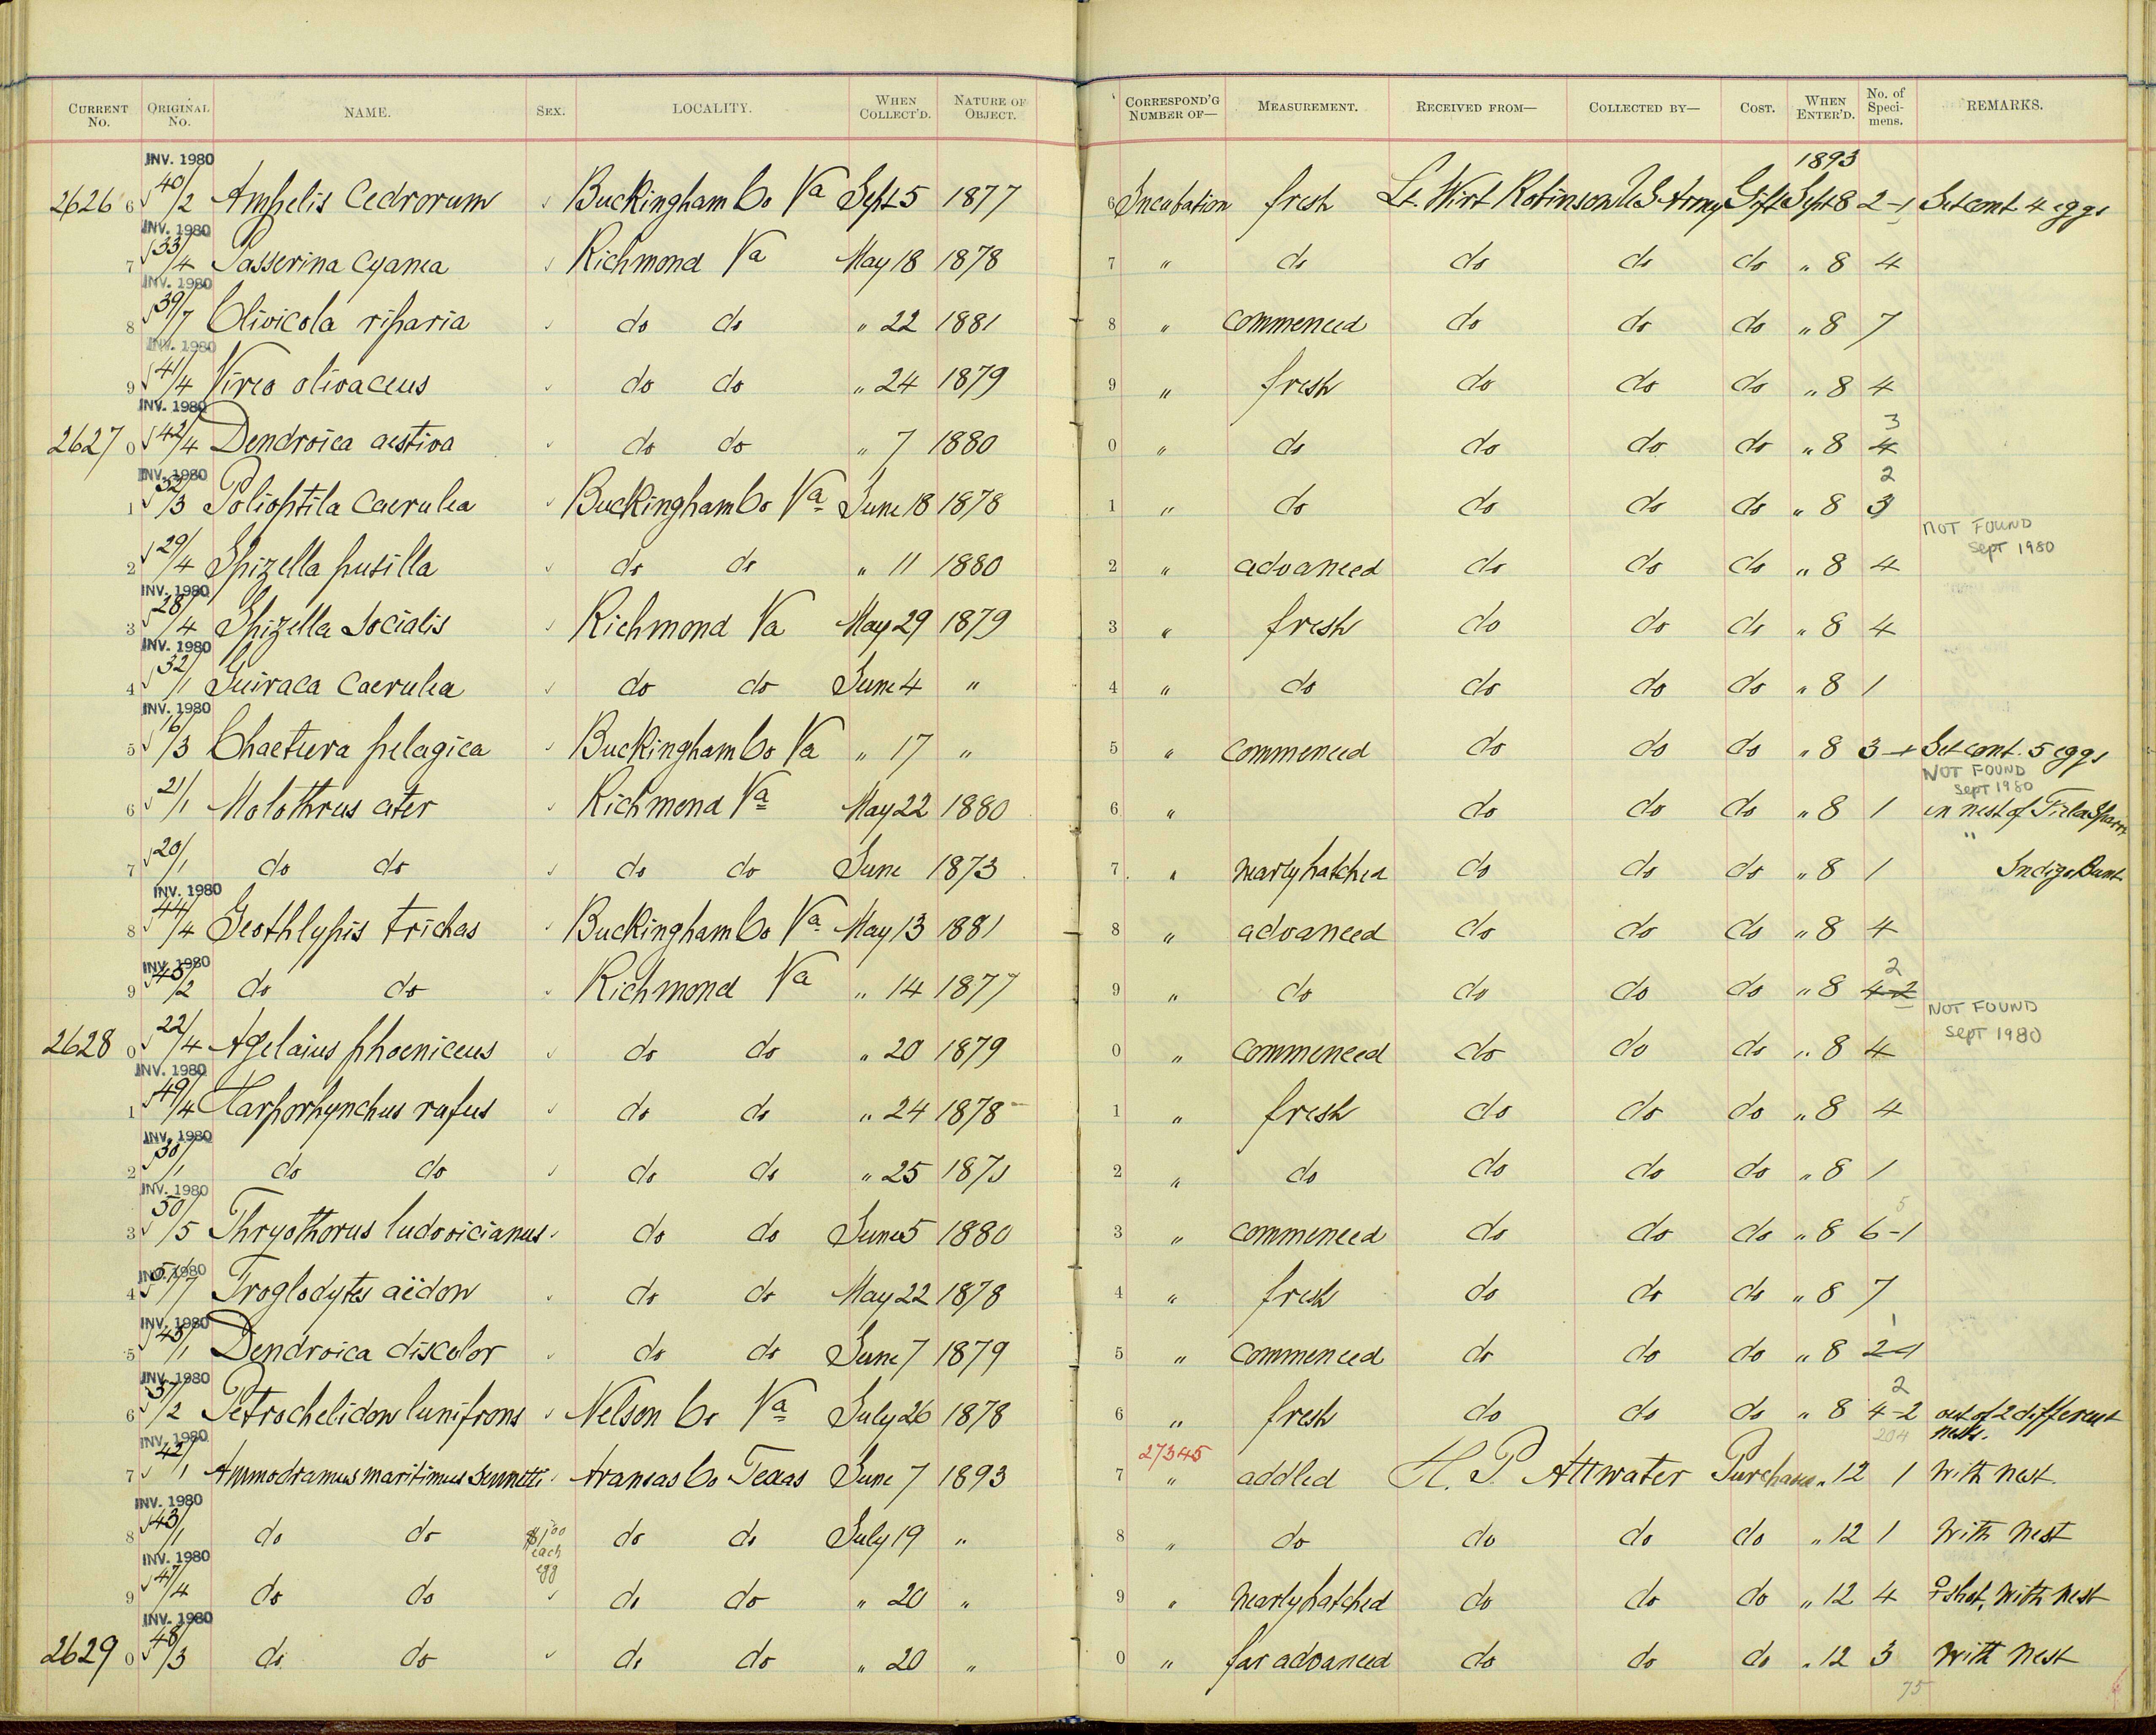 CURRENT No. ORIGINAL No. NAME. SEX. LOCALITY. WHEN COLLECT'D. NATURE OF OBJECT. CORRESPOND'G NUMBER OF— MEASUREMENT. RECEIVED FROM— COLLECTED BY— COST. WHEN ENTER'D. No. of Speci-mens. REMARKS.
INV. 1980 1893
2626 6 40/2 Ampelis Cedrorum Buckingham Co Va Sept 5 1877 6 Incubation fresh Lt. Wirt Robinson U S Army Gift Sept 8 2-1 Set cont 4 eggs
INV. 1980
7 33/4 Passerina Cyanea Richmond Va May 18 1878 7 " do do do do " 8 4
INV. 1980
8 39/7 Clivicola riparia do do " 22 1881 8 " commenced do do do " 8 7
INV. 1980
9 41/4 Vireo olivaceus do do " 24 1879 9 " fresh do do do " 8 4
INV. 1980 3
2627 0 42/4 Dendroica aestiva do do " 7 1880 0 " do do do do " 8 4
INV. 1980 2
1 52/3 Polioptila Caerulea Buckingham Co Va June 18 1878 1 " do do do do " 8 3
NOT FOUND Sept 1980
2 29/4 Spizella pusilla do do " 11 1880 2 " advanced do do do " 8 4
INV. 1980
3 28/4 Spizella Socialis Richmond Va May 29 1879 3 " fresh do do do " 8 4
INV. 1980
4 32/1 Guiraca Caerulea do do June 4 " 4 " do do do do " 8 1
INV. 1980
5 16/3 Chaetura pelagica Buckingham Co Va " 17 " 5 " commenced do do do " 8 3 Set cont. 5 eggs
NOT FOUND Sept 1980
6 21/1 Molothrus ater Richmond Va May 22 1880 6 " do do do " 8 1 in nest of Field Sparr
7 20/1 do do do do June 1873 7 " nearly hatched do do do " 8 1 " Indigo Bunt.
INV. 1980
8 44/4 Geothlypis trichas Buckingham Co Va May 13 1881 8 " advanced do do do " 8 4
INV. 1980 2
9 45/2 do do Richmond Va " 14 1877 9 " do do do do " 8 4-2
NOT FOUND Sept 1980
2628 0 22/4 Agelaius phoeniceus do do " 20 1879 0 " commenced do do do " 8 4
INV. 1980
1 49/4 Harporhynchus rufus do do " 24 1878 1 " fresh do do do " 8 4
INV. 1980
2 do do do do " 25 2 " do do do do " 8 1
INV. 1980 5
3 50/5 Thryothorus ludovicianus do do June 5 1880 3 " commenced do do do " 8 6-1
INV. 1980
4 51/7 Troglodytes aëdon do do May 22 1878 4 " fresh do do do " 8 7
INV. 1980 1
5 43/1 Dendroica discolor do do June 7 1879 5 " commenced do do do " 8 2-1
INV. 1980 2
6 37/2 Petrochelidon lunifrons Nelson Co Va July 26 1878 6 " fresh do do do " 8 4-2 out of 2 different nests.
INV. 1980 27345 204
7 42/1 Ammodramus maritimus Sennetti Aransas Co Texas June 7 1893 7 " addled H. P. Attwater Purchase " 12 1 With nest.
INV. 1980
8 43/1 do do $1.00 each egg do do July 19 " 8 " do do do do " 12 1 With nest
INV. 1980
9 47/4 do do do do " 20 " 9 " nearly hatched do do do " 12 4 ♀ shot, With nest
INV. 1980
2629 0 48/3 do do do do " 20 " 0 " far advanced do do do " 12 3 With nest
75